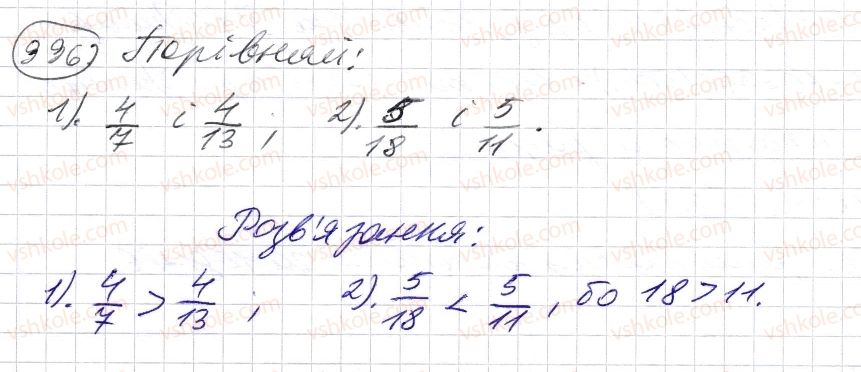 996) Порівняй:
1). 4/7 і 4/13 ; 2). 5/18 і 5/11 .
Розв'язання:
1). 4/7 > 4/13 ; 2). 5/18 < 5/11 , бо 18 > 11.